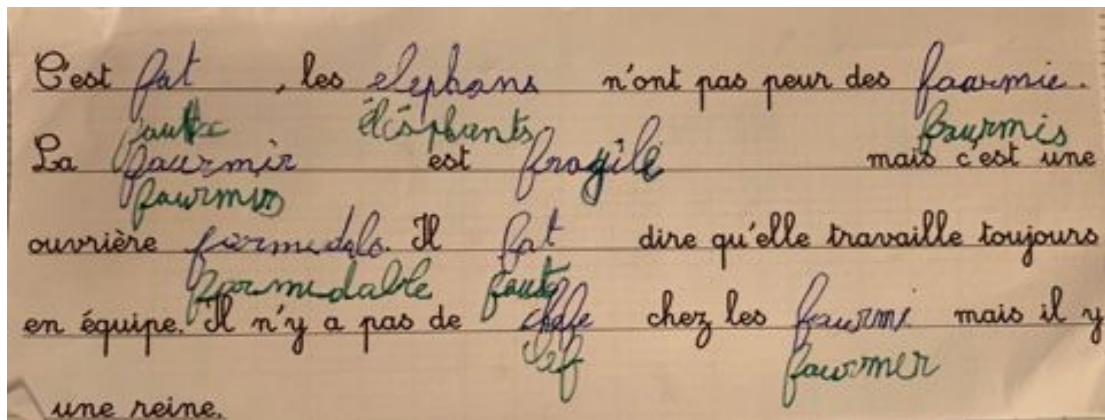 C'est fat , les elephans n'ont pas peur des fourmie.
faute éléphants fourmis
La fourmir est fragile mais c'est une
fourmis
ouvrière formidals. Il fat dire qu'elle travaille toujours
formidable faut
en équipe. Il n'y a pas de chefe chez les fourmi mais il y
fourmir
une reine.